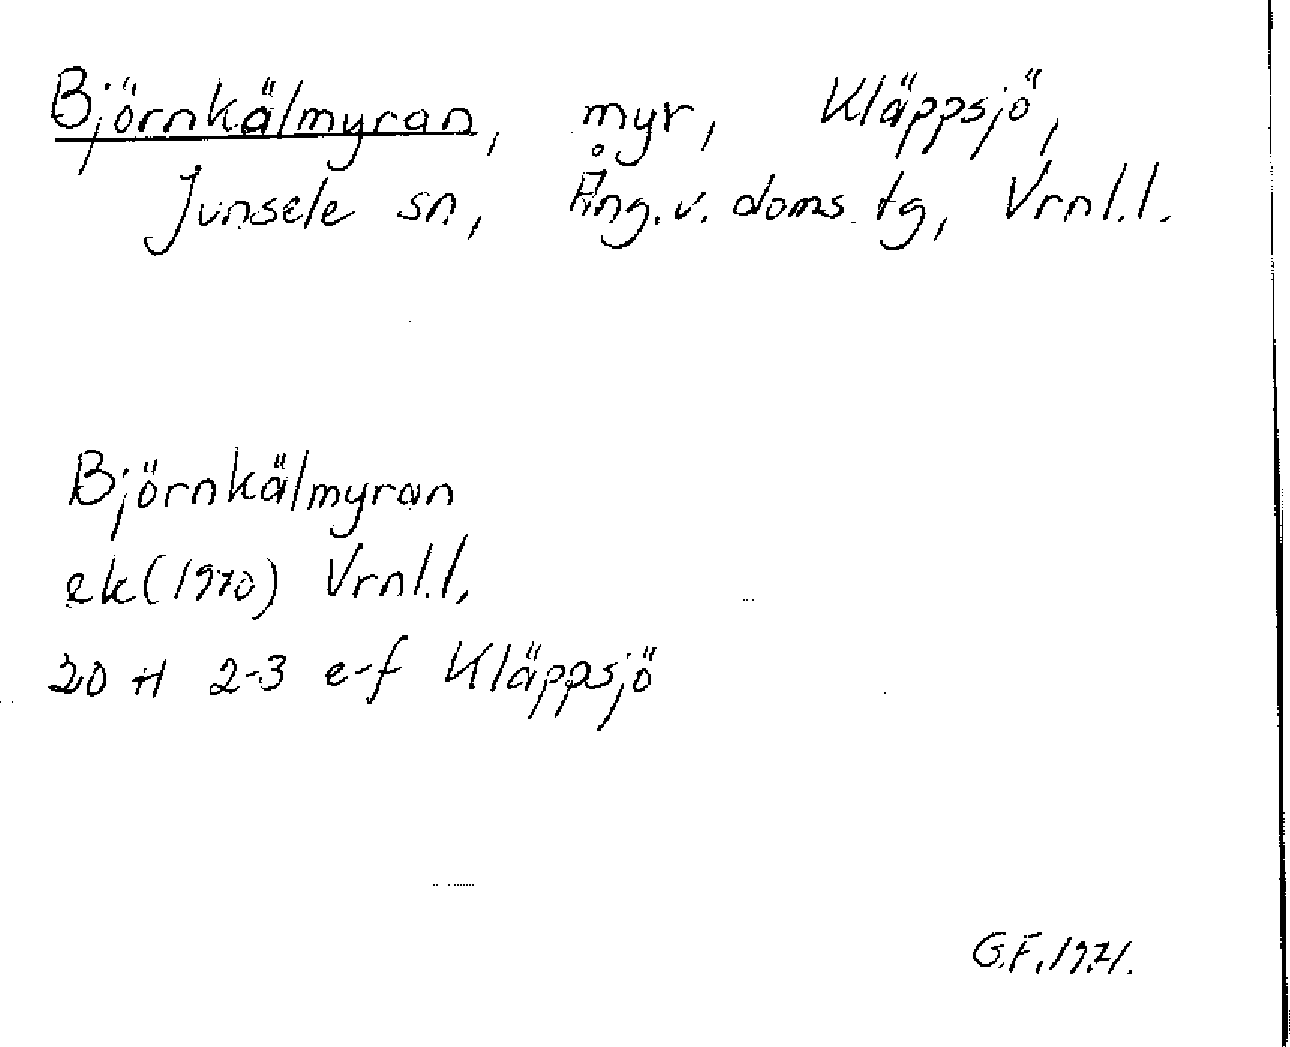 Björnkälmyran, myr, Kläppsjö,
Junsele sn, Ång.v. doms.tg, Vrnl.l.
Björnkälmyran
ek(1970) Vrnl.l,
20 H 2-3 e-f Kläppsjö
G.F.1971.